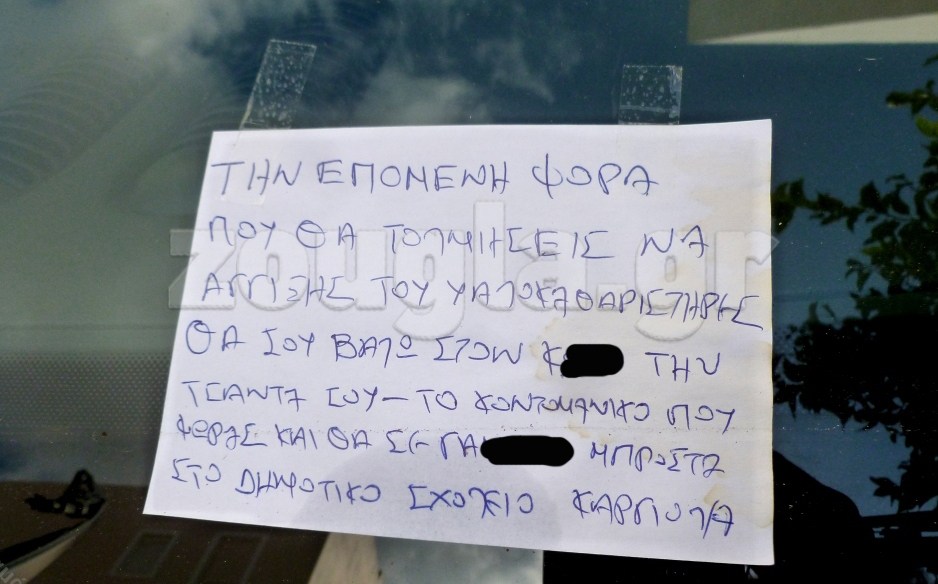 ΤΗΝ ΕΠΟΜΕΝΗ ΦΟΡΑ
ΠΟΥ ΘΑ ΤΟΛΜΗΣΕΙΣ ΝΑ
ΑΓΓΙΞΗΣ ΤΟΥ ΥΑΛΟΚΑΘΑΡΙΣΤΗΡΕΣ
ΘΑ ΣΟΥ ΒΑΛΩ ΣΤΟΝ Κ ΤΗΝ
ΤΣΑΝΤΑ ΣΟΥ – ΤΟ ΚΟΝΤΟΜΑΝΙΚΟ ΠΟΥ
ΦΟΡΑΣ ΚΑΙ ΘΑ ΣΕ ΓΑ ΜΠΡΟΣΤΑ
ΣΤΟ ΔΗΜΟΤΙΚΟ ΣΧΟΛΕΙΟ ΚΑΡΓΙΟΛΑ
zougla.gr